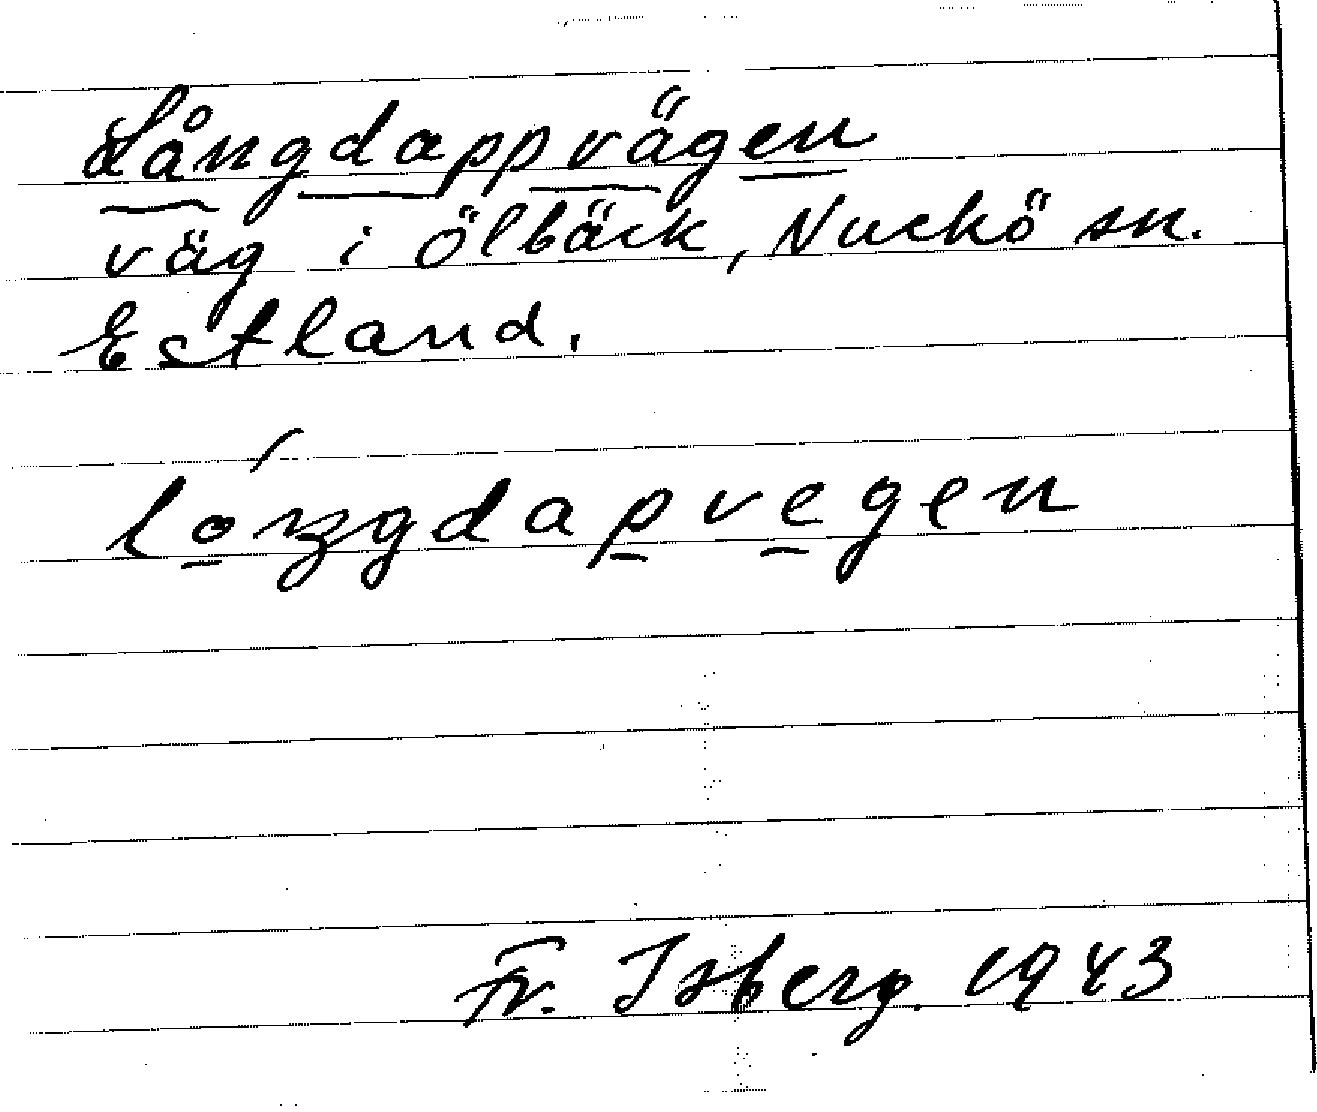 Långdappvägen
väg i Ölbäck, Nuckö sn.
Estland.
lóŋgdapvegen
Fr. Isberg. 1943